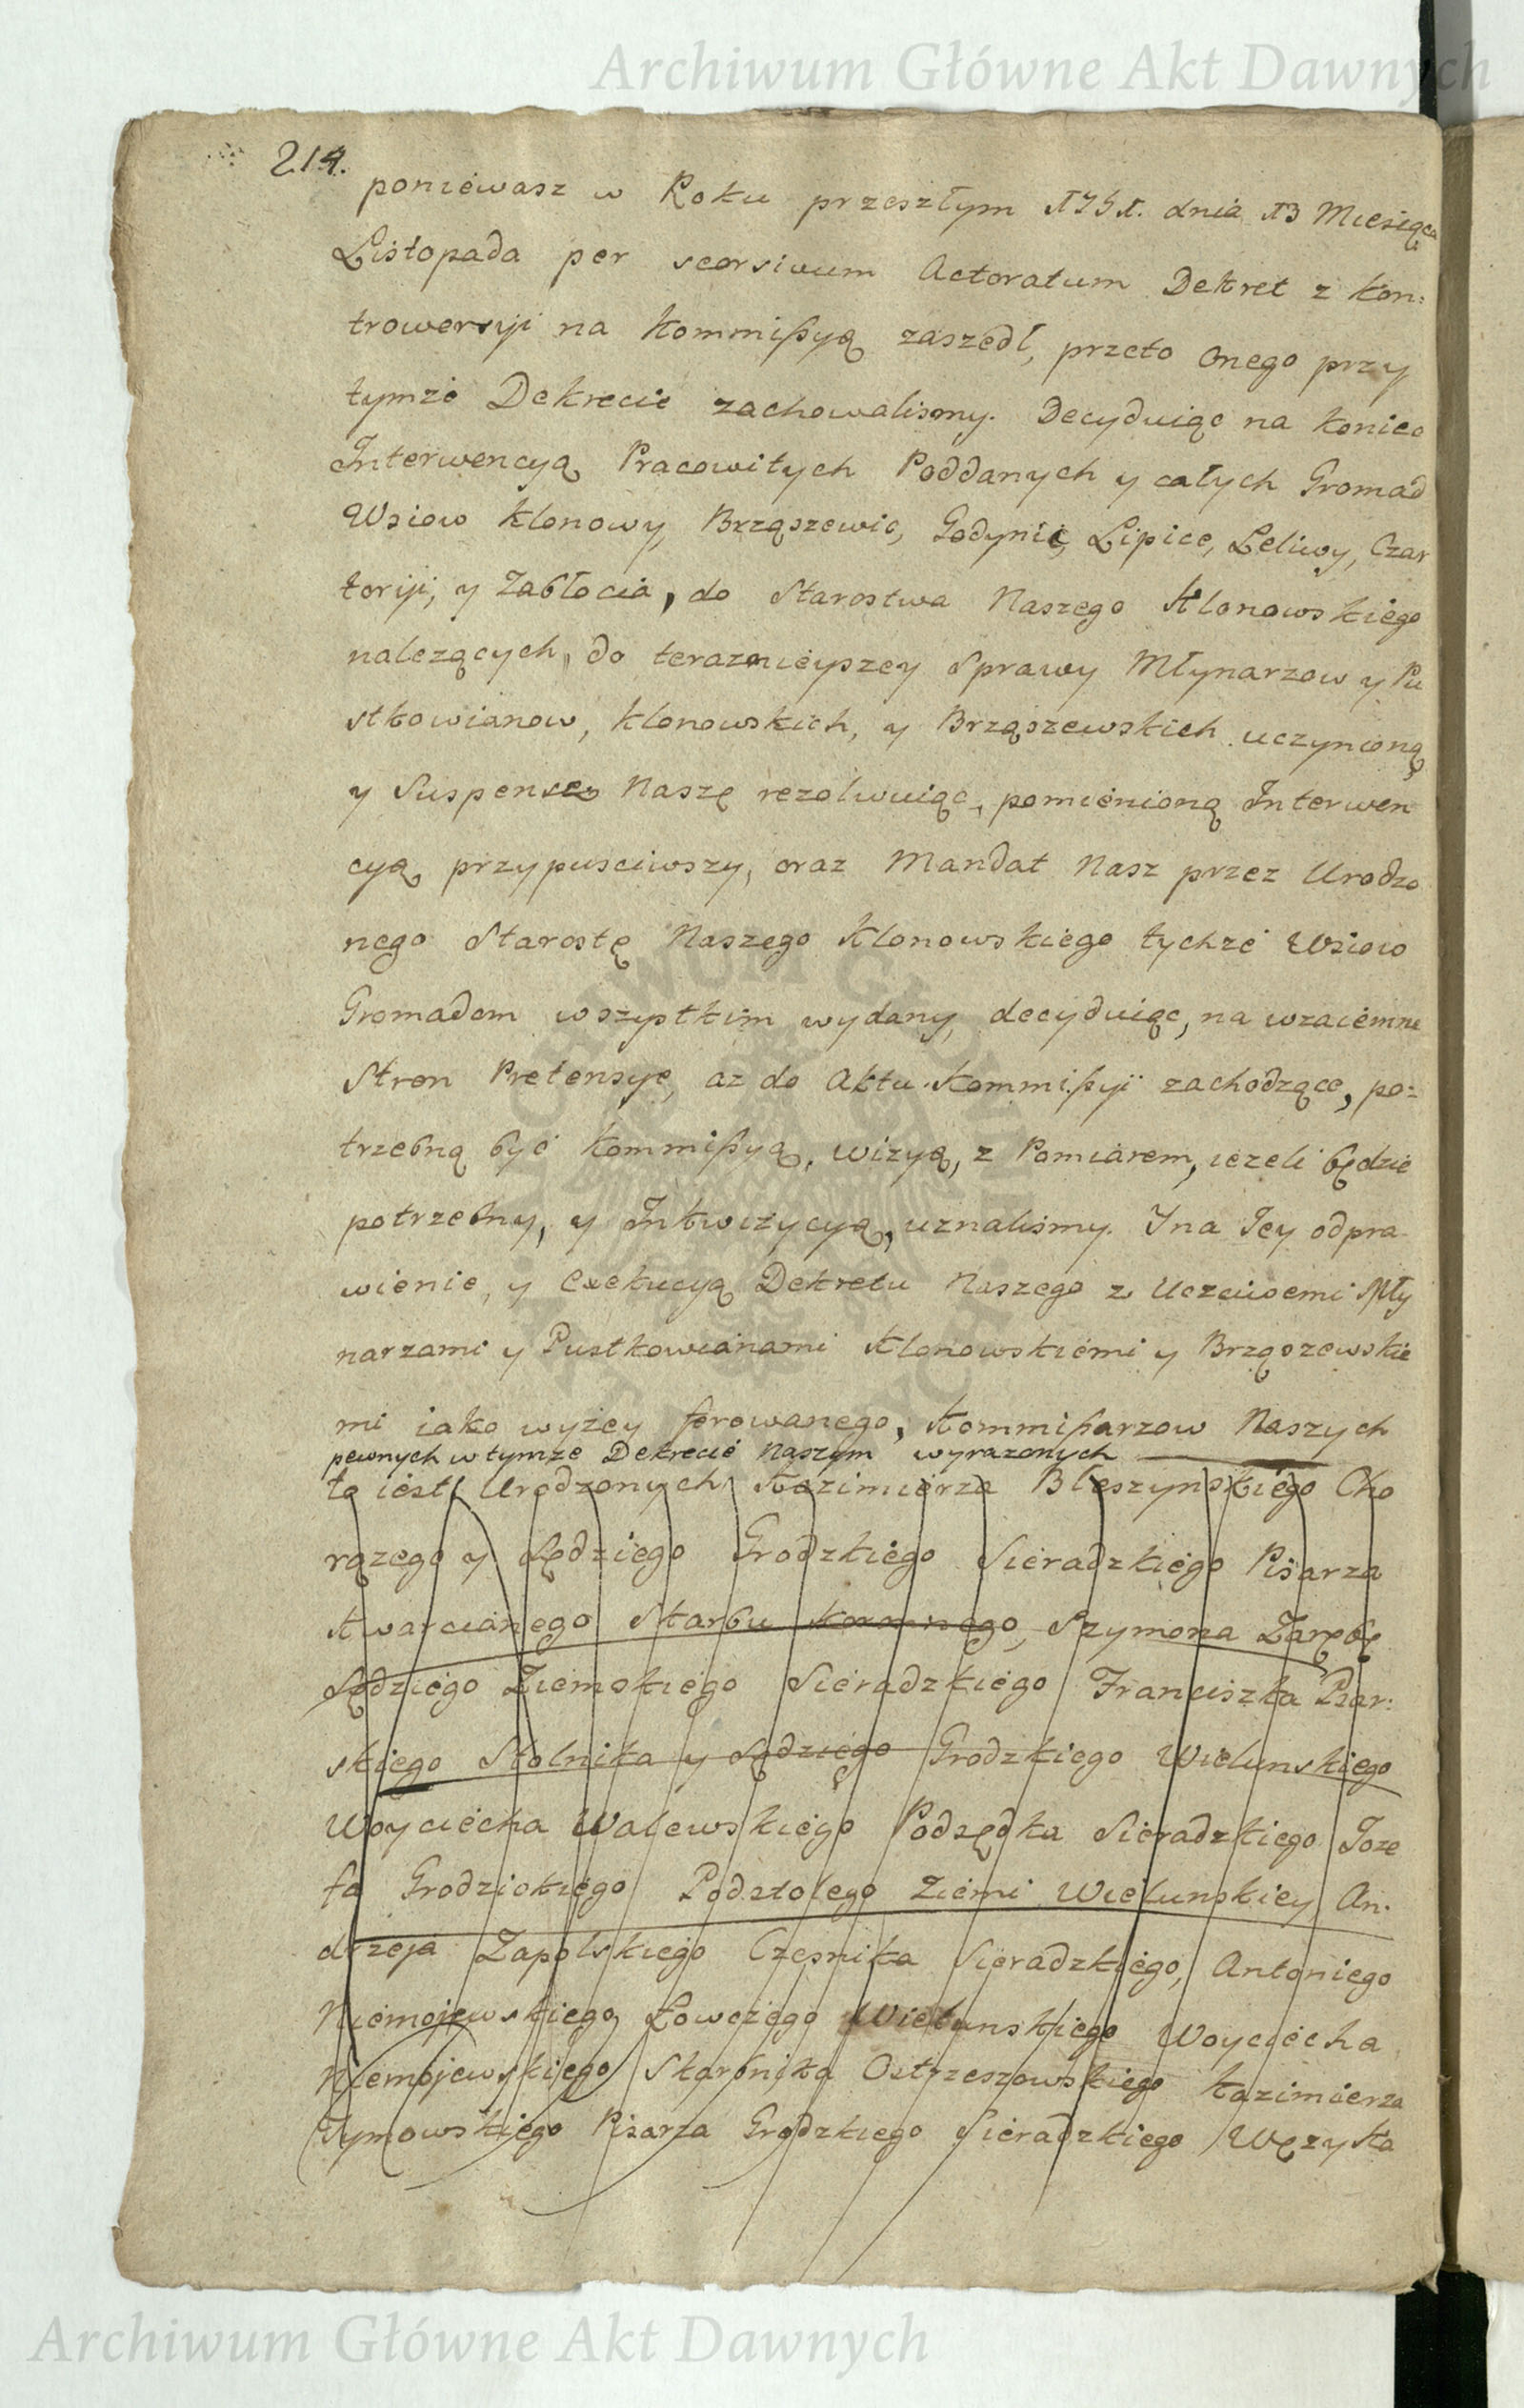 Archiwum Główne Akt Dawnych
214.
poniewasz w Roku przeszłym 1751. dnia 13 Miesiąca
Listopada per seorsivum Actoratum Dekret z kon:
trowersyi na Kommißyą zaszedł, przeto onego przy
tymze Dekrecie zachowalismy. Decyduiąc na koniec
Interwencyą Pracowitych Poddanych y całych Gromad
Wsiow Klonowy, Brząszewic, Godynic, Lipice, Leliwy, Czar
toriji, y Zabłocia, do Starostwa Naszego Klonowskiego
nalezących, do teraznieyszey Sprawy Młynarzow y Pu
stkowianow, Klonowskich, y Brząszewskich uczynioną
y Suspensę Naszę rezolwuiąc, pomienioną Interwen
cyą przypusciwszy, oraz Mandat Nasz przez Urodzo
nego Starostę Naszego Klonowskiego tychze Wsiow
Gromadom wszystkim wydany, decyduiąc, na wzaiemne
Stron Pretensye, az do Aktu Kommißyi zachodzące, po:
trzebną być Kommißyą, wizyą, z Pomiarem, iezeli będzie
potrzebny, y Inkwizycyą, uznalismy. Y na Jey odpra
wienie, y Exekucyą Dekretu Naszego z Uczciwemi Mły
narzami y Pustkowianami Klonowskiemi y Brząszewskie
mi iako wyzey ferowanego, Kommißarzow Naszych
pewnych w tymze Dekrecie Naszym wyrazonych
to iest Urodzonych Kazimierza Bleszynskiego Cho
rązego y Sędziego Grodzkiego Sieradzkiego Pisarza
Kwarcianego Skarbu Koronnego, Szymona Zarębę
Sędziego Ziemskiego Sieradzkiego Franciszka Psar:
skiego Stolnika y Sędziego Grodzkiego Wielunskiego
Woyciecha Walewskiego Podsędka Sieradzkiego Joze
fa Grodzickiego Podstolego Ziemi Wielunskiey An:
drzeja Zapolskiego Czesnika Sieradzkiego, Antoniego
Niemojewskiego Łowczego Wielunskiego Woyciecha
Niemojewskiego Skarbnika Ostrzeszowskiego Kazimierza
Tymowskiego Pisarza Grodzkiego Sieradzkiego Węzyka
Archiwum Główne Akt Dawnych